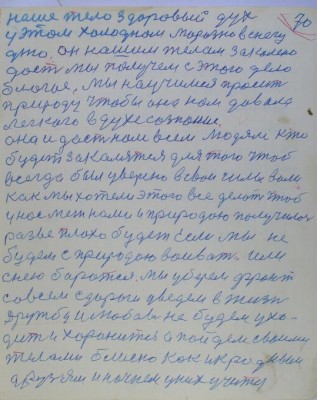 наше тело здоровый дух 70
у этом холодном морозном снегу
это. он нашим телам закалко
даст мы получем с этого дело
благое, мы научимся просить
природу чтобы она нам давала
легкаго в духе сознание.
она и даст нам всем людям кто
будит закалятся для того чтоб
всегда был уверено в свои силы воли
как мы хотели этого все делать чтоб
у нас меж нами и природаю получилось
разве плохо будет если мы не
будем с природаю воивать. или
снею баротся. мы уберем фронт
совсем с дароги уведем в жизнь
дружбу и любовь не будем ухо-
дить и хоронится а пойдем своими
телами близко как и к родным
друзьям и начнем у них учится